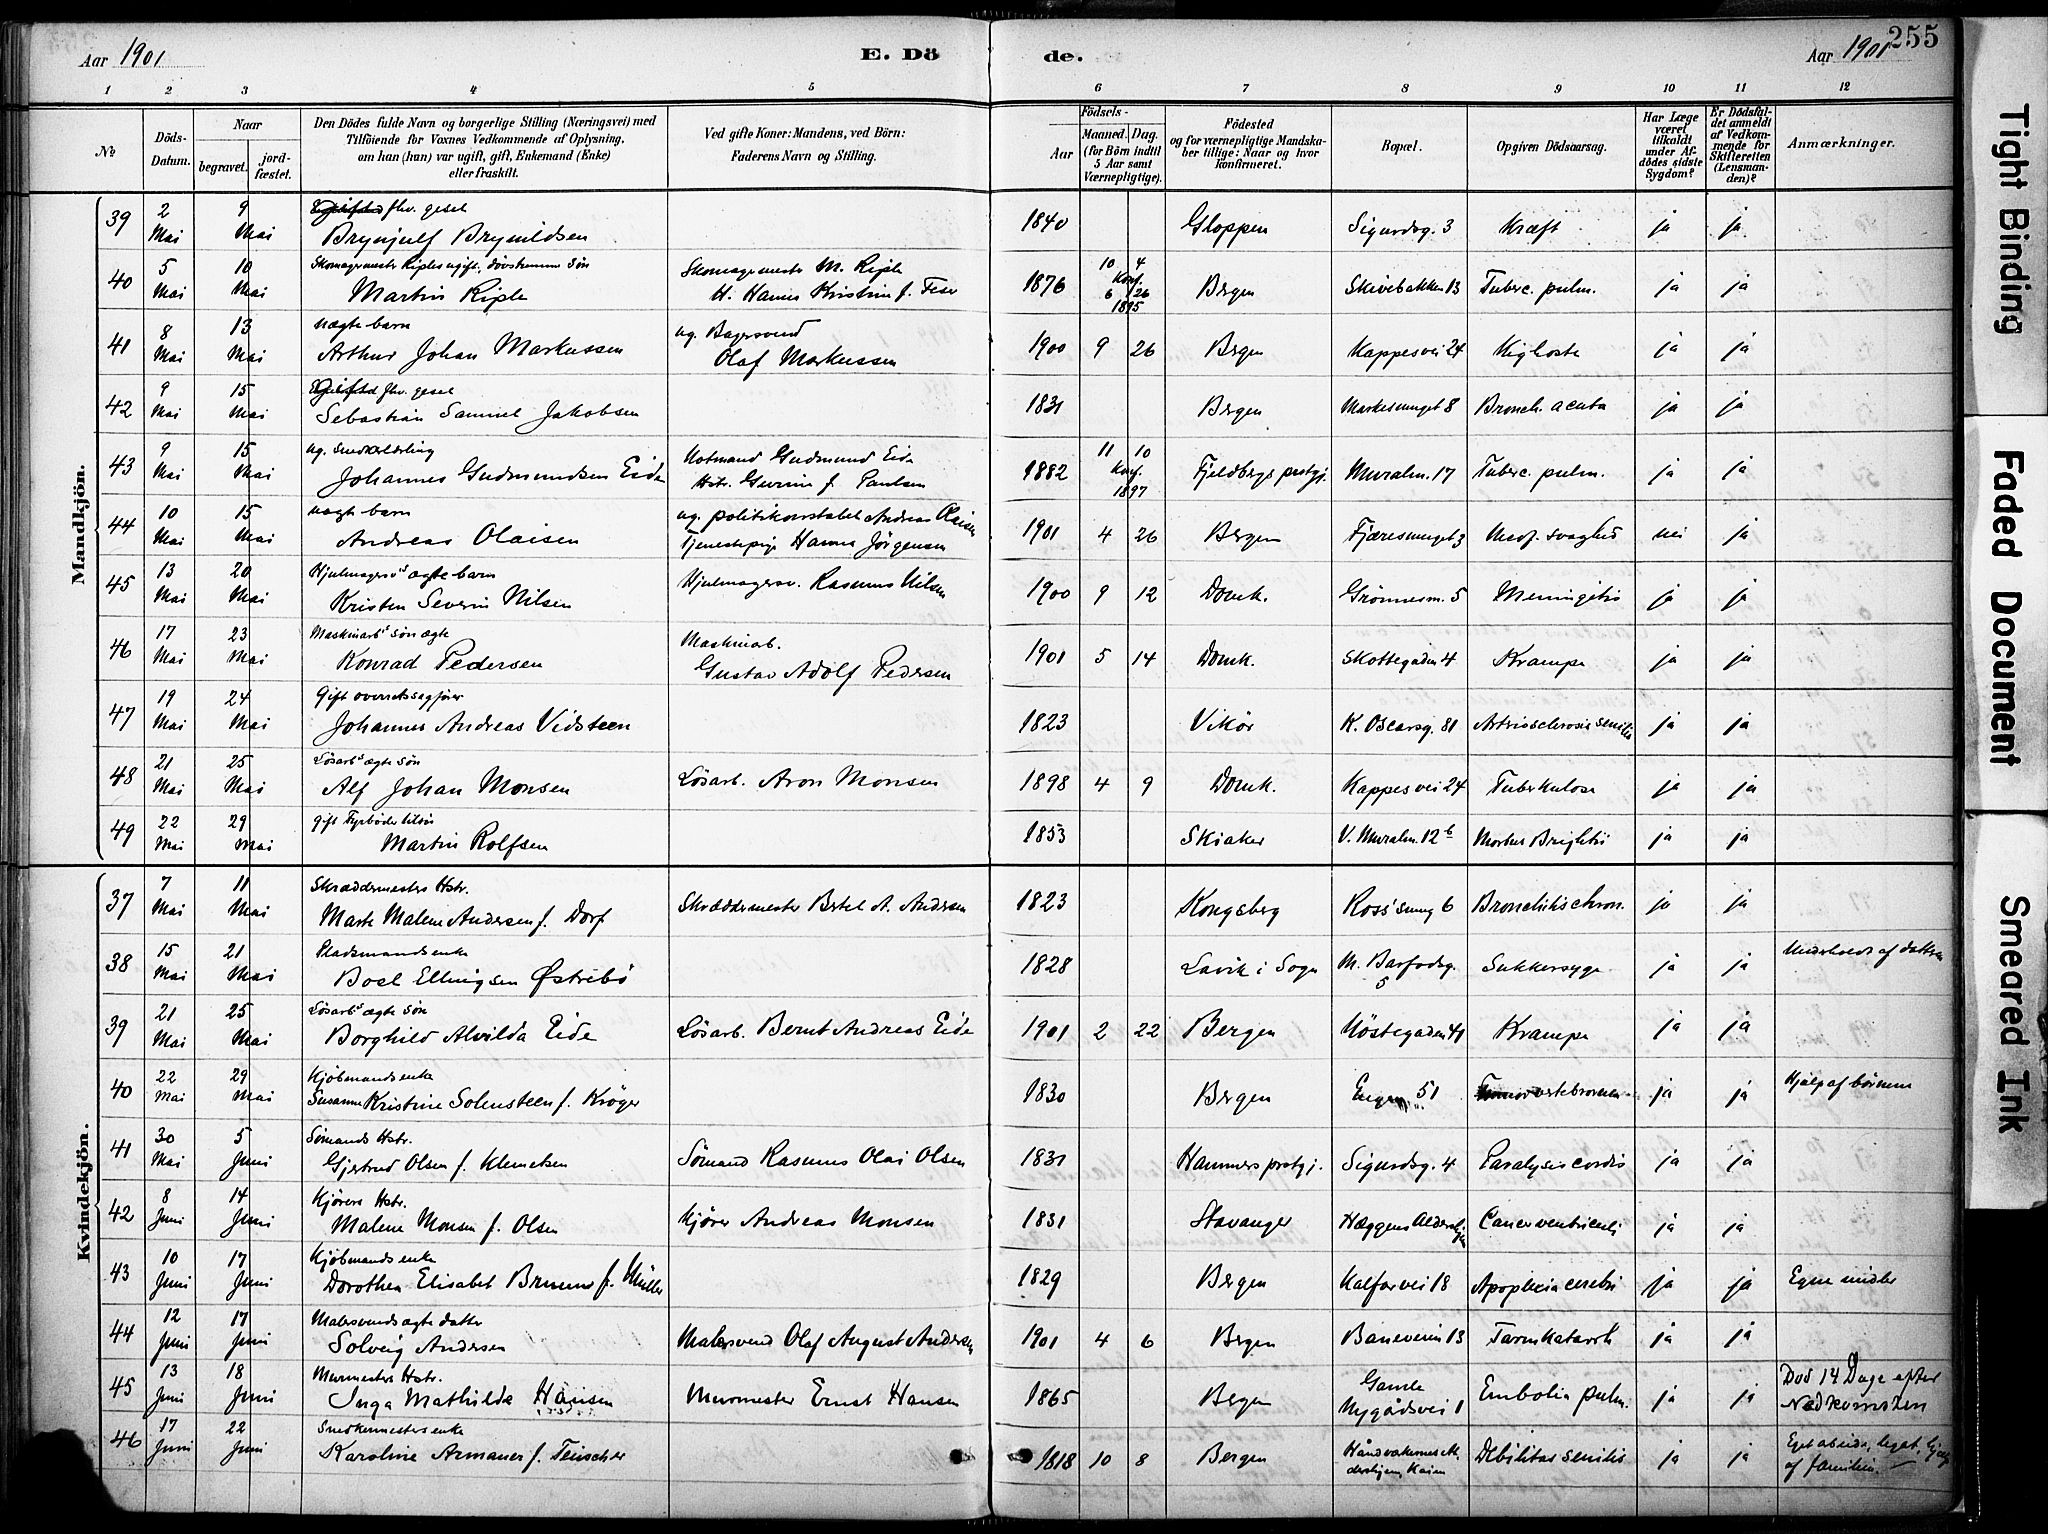 Aar 1901
E. Dö
de.
Aar 1901
255
1 2 3 4 5 6 7 8 9 10 11 12
No
Döds-Datum.
Naar
begravet.
jordfæstet.
Den Dödes fulde Navn og borgerlige Stilling (Næringsvei) med
Tilföiende for Voxnes Vedkommende af Oplysning,
om han (hun) var ugift, gift, Enkemand (Enke)
eller fraskilt.
Ved gifte Koner: Mandens, ved Börn:
Faderens Navn og Stilling.
Födsels-
Aar
Maaned. Dag.
(for Börn indtil
5 Aar samt
Værnepligtige).
Födested
og for værnepligtige Mandskaber tillige: Naar og hvor
konfirmeret.
Bopæl.
Opgiven Dödsaarsag.
Har Læge
været
tilkaldt
under Afdödes sidste
Sygdom?
Er Dödsfaldet anmeldt
af Vedkommende for
Skifteretten
(Lensmanden)?
Anmærkninger.
Mandkjön.
39 2 Mai 9 Mai fhv. gesel
Brynjulf Brynildsen 1840 Gloppen Sigurdsg. 3 Kræft ja ja
40 5 Mai 10 Mai Skomagermester Riples ugift, døvstumme søn
Martin Riple Skomagermester M. Riple
H. Hanne Kristine f. 1876 10 4 Konf. 6 26 1895 Bergen Skivebakken 13 Tuberc. pulm. ja ja
41 8 Mai 13 Mai uægte barn
Arthur Johan Markussen ug. Bagersvend
Olaf Markussen 1900 9 26 Bergen Kappesvei 24 Kighoste ja ja
42 9 Mai 15 Mai fhv. gesel
Sebastian Samuel Jakobsen 1831 Bergen Markesmuget 8 Bronch. acuta ja ja
43 9 Mai 15 Mai ug. Snedkerlærling
Johannes Gudmundsen Eide Notmand Gudmund Eide
Hstr. Gurine f. Paulsen 1882 11 10 Konf. 1897 Fjeldbergs prstgj. Muralm. 17 Tuberc. pulm. ja ja
44 10 Mai 15 Mai uægte barn
Andreas Olaisen ug. politikonstabel Andreas Olaisen
Tjenestepige Hanna Jörgensen 1901 4 26 Bergen Fjæresmuget 3 Medf. svaghed nei ja
45 13 Mai 20 Mai Hjulmagersvs ægte barn
Kristen Severin Nilsen Hjulmagersv. Rasmus Nilsen 1900 9 12 Domk. Grönnesm. 5 Meningitis ja ja
46 17 Mai 23 Mai Maskinarbs søn ægte
Konrad Pedersen Maskinarb.
Gustav Adolf Pedersen 1901 5 14 Domk. Skottegaden 4 Krampe ja ja
47 19 Mai 24 Mai gift overretssagfører
Johannes Andreas Vidsteen 1823 Vikör K. Oscarsg. 81 Artriosclerosis senilis ja ja
48 21 Mai 25 Mai Lösarbs ægte søn
Alf Johan Monsen Lösarb. Aron Monsen 1898 4 9 Domk. Kappesvei 24 Tuberkulose ja ja
49 22 Mai 29 Mai gift Fyrbøder tilsøs
Martin Rolfsen 1853 Skiaker V. Muralm. 12 b Morbus Brightii ja ja
Kvindekjön.
37 7 Mai 11 Mai Skræddermesters Hstr.
Marte Malene Andersen f. Dorf Skræddermester Bertel A. Andersen 1823 Kongsberg Ross'smug 6 Bronchitis chron. ja ja
38 15 Mai 21 Mai Pladsmands enke
Boel Ellingsen Østrebö 1828 Lavik i Sogn M. Barfodsg. 5 Sukkersyge ja ja Underholdt af datteren
39 21 Mai 25 Mai Lösarbs ægte søn
Borghild Alvilda Eide Lösarb. Bernt Andreas Eide 1901 2 22 Bergen Nöstegaden 41 Krampe ja ja
40 22 Mai 29 Mai Kjöbmands enke
Susanne Kristine Solensteen f. Kröger 1830 Bergen Engen 51 ja ja Hjælp af börnene
41 30 Mai 5 Juni Sömands Hstr.
Gjertrud Olsen f. Klemetsen Sömand Rasmus Olai Olsen 1831 Hammers prstgj. Sigurdsg. 4 Paralysis cordis ja ja
42 8 Juni 14 Juni Kjörers Hstr.
Malene Monsen f. Olsen Kjörer Andreas Monsen 1831 Stavanger Hæggens Aldershjem Cancer ventriculi ja ja
43 10 Juni 17 Juni Kjöbmands enke
Dorothea Elisabet Bruuns f. Müller 1829 Bergen Kalfarvei 18 Apoplexia cerebri ja ja Egne midler
44 12 Juni 17 Juni Malersvends ægte datter
Solveig Andersen Malersvend Olaf August Andersen 1901 4 6 Bergen Baneveien 13 Tarmkatarrh ja ja
45 13 Juni 18 Juni Murmesters Hstr.
Inga Mathilde Hansen Murmester Ernst Hansen 1865 Bergen Gamle Nygårdsvei 1 Embolia pulm. ja ja Död 14 Dage efter Nedkomsten
46 17 Juni 22 Juni Snedkermesters enke
Karoline Armauer f. Teuscher 1818 10 8 Bergen Håndværkernes Alderhjem, Kaien Debilitas senilis ja ja Eget arbeide, legat, hjælp af familien.
Tight Binding
Faded Document
Smeared Ink